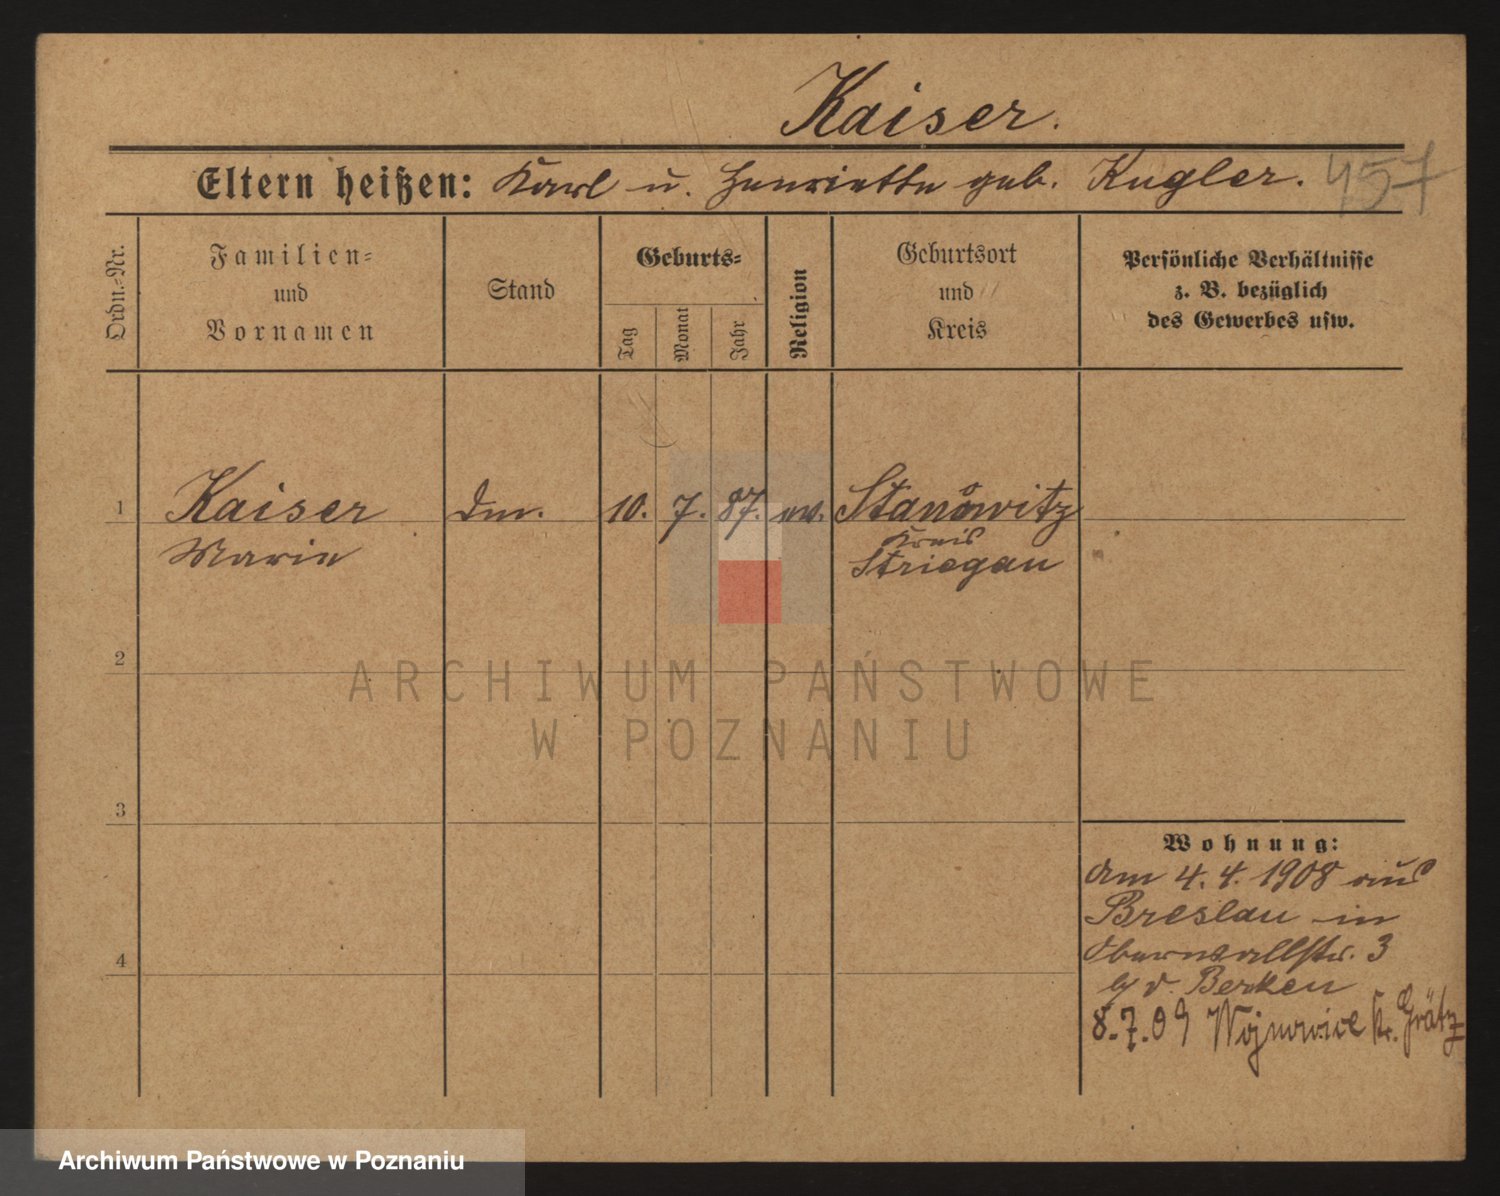 Kaiser.
Eltern heißen: Karl u. Henriette geb. Kugler. 457
Ordn.-Nr.
Familien-
und
Vornamen
Stand
Geburts-
Tag
Monat
Jahr
Religion
Geburtsort
und
Kreis
Persönliche Verhältnisse
z. B. bezüglich
des Gewerbes usw.
1 Kaiser
Marie
10. 7. 87. ev. Stanowitz
Kreis
Striegau
2
3
4
Wohnung:
Am 4. 4. 1908 aus
Breslau in
3
v. Berken
8.7.09 Kr. Grätz
ARCHIWUM PAŃSTWOWE
W POZNANIU
Archiwum Państwowe w Poznaniu